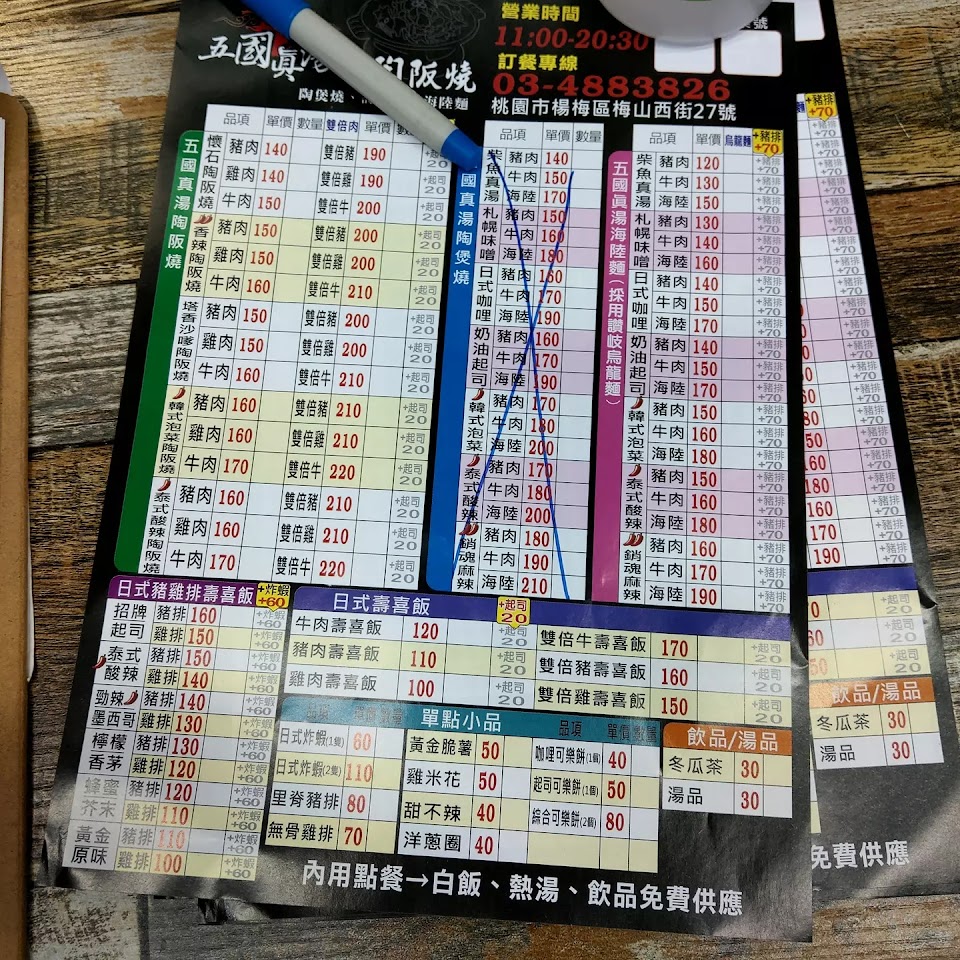 營業時間
11:00-20:30
訂餐專線
03-4883826
桃園市楊梅區梅山西街27號
五國真
陶阪燒
陶煲燒、
海陸麵
五國真湯陶阪燒
品項 單價 數量 雙倍肉 單價
懷石陶阪燒
豬肉 140 雙倍豬 190 +起司 20
雞肉 140 雙倍雞 190 +起司 20
牛肉 150 雙倍牛 200 +起司 20
香辣陶阪燒
豬肉 150 雙倍豬 200 +起司 20
雞肉 150 雙倍雞 200 +起司 20
牛肉 160 雙倍牛 210 +起司 20
塔香沙嗲陶阪燒
豬肉 150 雙倍豬 200 +起司 20
雞肉 150 雙倍雞 200 +起司 20
牛肉 160 雙倍牛 210 +起司 20
韓式泡菜陶阪燒
豬肉 160 雙倍豬 210 +起司 20
雞肉 160 雙倍雞 210 +起司 20
牛肉 170 雙倍牛 220 +起司 20
泰式酸辣陶阪燒
豬肉 160 雙倍豬 210 +起司 20
雞肉 160 雙倍雞 210 +起司 20
牛肉 170 雙倍牛 220 +起司 20
國真湯陶煲燒
品項 單價 數量
柴魚真湯
豬肉 140
牛肉 150
海陸 170
札幌味噌
豬肉 150
牛肉 160
海陸 180
日式咖哩
豬肉 160
牛肉 170
海陸 190
奶油起司
豬肉 160
牛肉 170
海陸 190
韓式泡菜
豬肉 170
牛肉 180
海陸 200
泰式酸辣
豬肉 170
牛肉 180
海陸 200
銷魂麻辣
豬肉 180
牛肉 190
海陸 210
五國真湯海陸麵(採用讚岐烏龍麵)
品項 單價 烏龍麵 +豬排 +70
柴魚真湯
豬肉 120 +豬排 +70
牛肉 130 +豬排 +70
海陸 150 +豬排 +70
札幌味噌
豬肉 130 +豬排 +70
牛肉 140 +豬排 +70
海陸 160 +豬排 +70
日式咖哩
豬肉 140 +豬排 +70
牛肉 150 +豬排 +70
海陸 170 +豬排 +70
奶油起司
豬肉 140 +豬排 +70
牛肉 150 +豬排 +70
海陸 170 +豬排 +70
韓式泡菜
豬肉 150 +豬排 +70
牛肉 160 +豬排 +70
海陸 180 +豬排 +70
泰式酸辣
豬肉 150 +豬排 +70
牛肉 160 +豬排 +70
海陸 180 +豬排 +70
銷魂麻辣
豬肉 160 +豬排 +70
牛肉 170 +豬排 +70
海陸 190 +豬排 +70
日式豬雞排壽喜飯 +炸蝦 +60
招牌起司
豬排 160 +炸蝦 +60
雞排 150 +炸蝦 +60
泰式酸辣
豬排 150 +炸蝦 +60
雞排 140 +炸蝦 +60
勁辣墨西哥
豬排 140 +炸蝦 +60
雞排 130 +炸蝦 +60
檸檬香茅
豬排 130 +炸蝦 +60
雞排 120 +炸蝦 +60
蜂蜜芥末
豬排 120 +炸蝦 +60
雞排 110 +炸蝦 +60
黃金原味
豬排 110 +炸蝦 +60
雞排 100 +炸蝦 +60
日式壽喜飯 +起司 20
牛肉壽喜飯 120 +起司 20 雙倍牛壽喜飯 170 +起司 20
豬肉壽喜飯 110 +起司 20 雙倍豬壽喜飯 160 +起司 20
雞肉壽喜飯 100 +起司 20 雙倍雞壽喜飯 150 +起司 20
品項 單價 數量 單點小品 品項 單價 數量
日式炸蝦(1隻) 60 黃金脆薯 50 咖哩可樂餅(1個) 40
日式炸蝦(2隻) 110 雞米花 50 起司可樂餅(1個) 50
里脊豬排 80 甜不辣 40 綜合可樂餅(2個) 80
無骨雞排 70 洋蔥圈 40
飲品/湯品
冬瓜茶 30
湯品 30
內用點餐→白飯、熱湯、飲品免費供應
號
+豬排
+70
160
170
190
飲品/湯品
冬瓜茶 30
湯品 30
免費供應